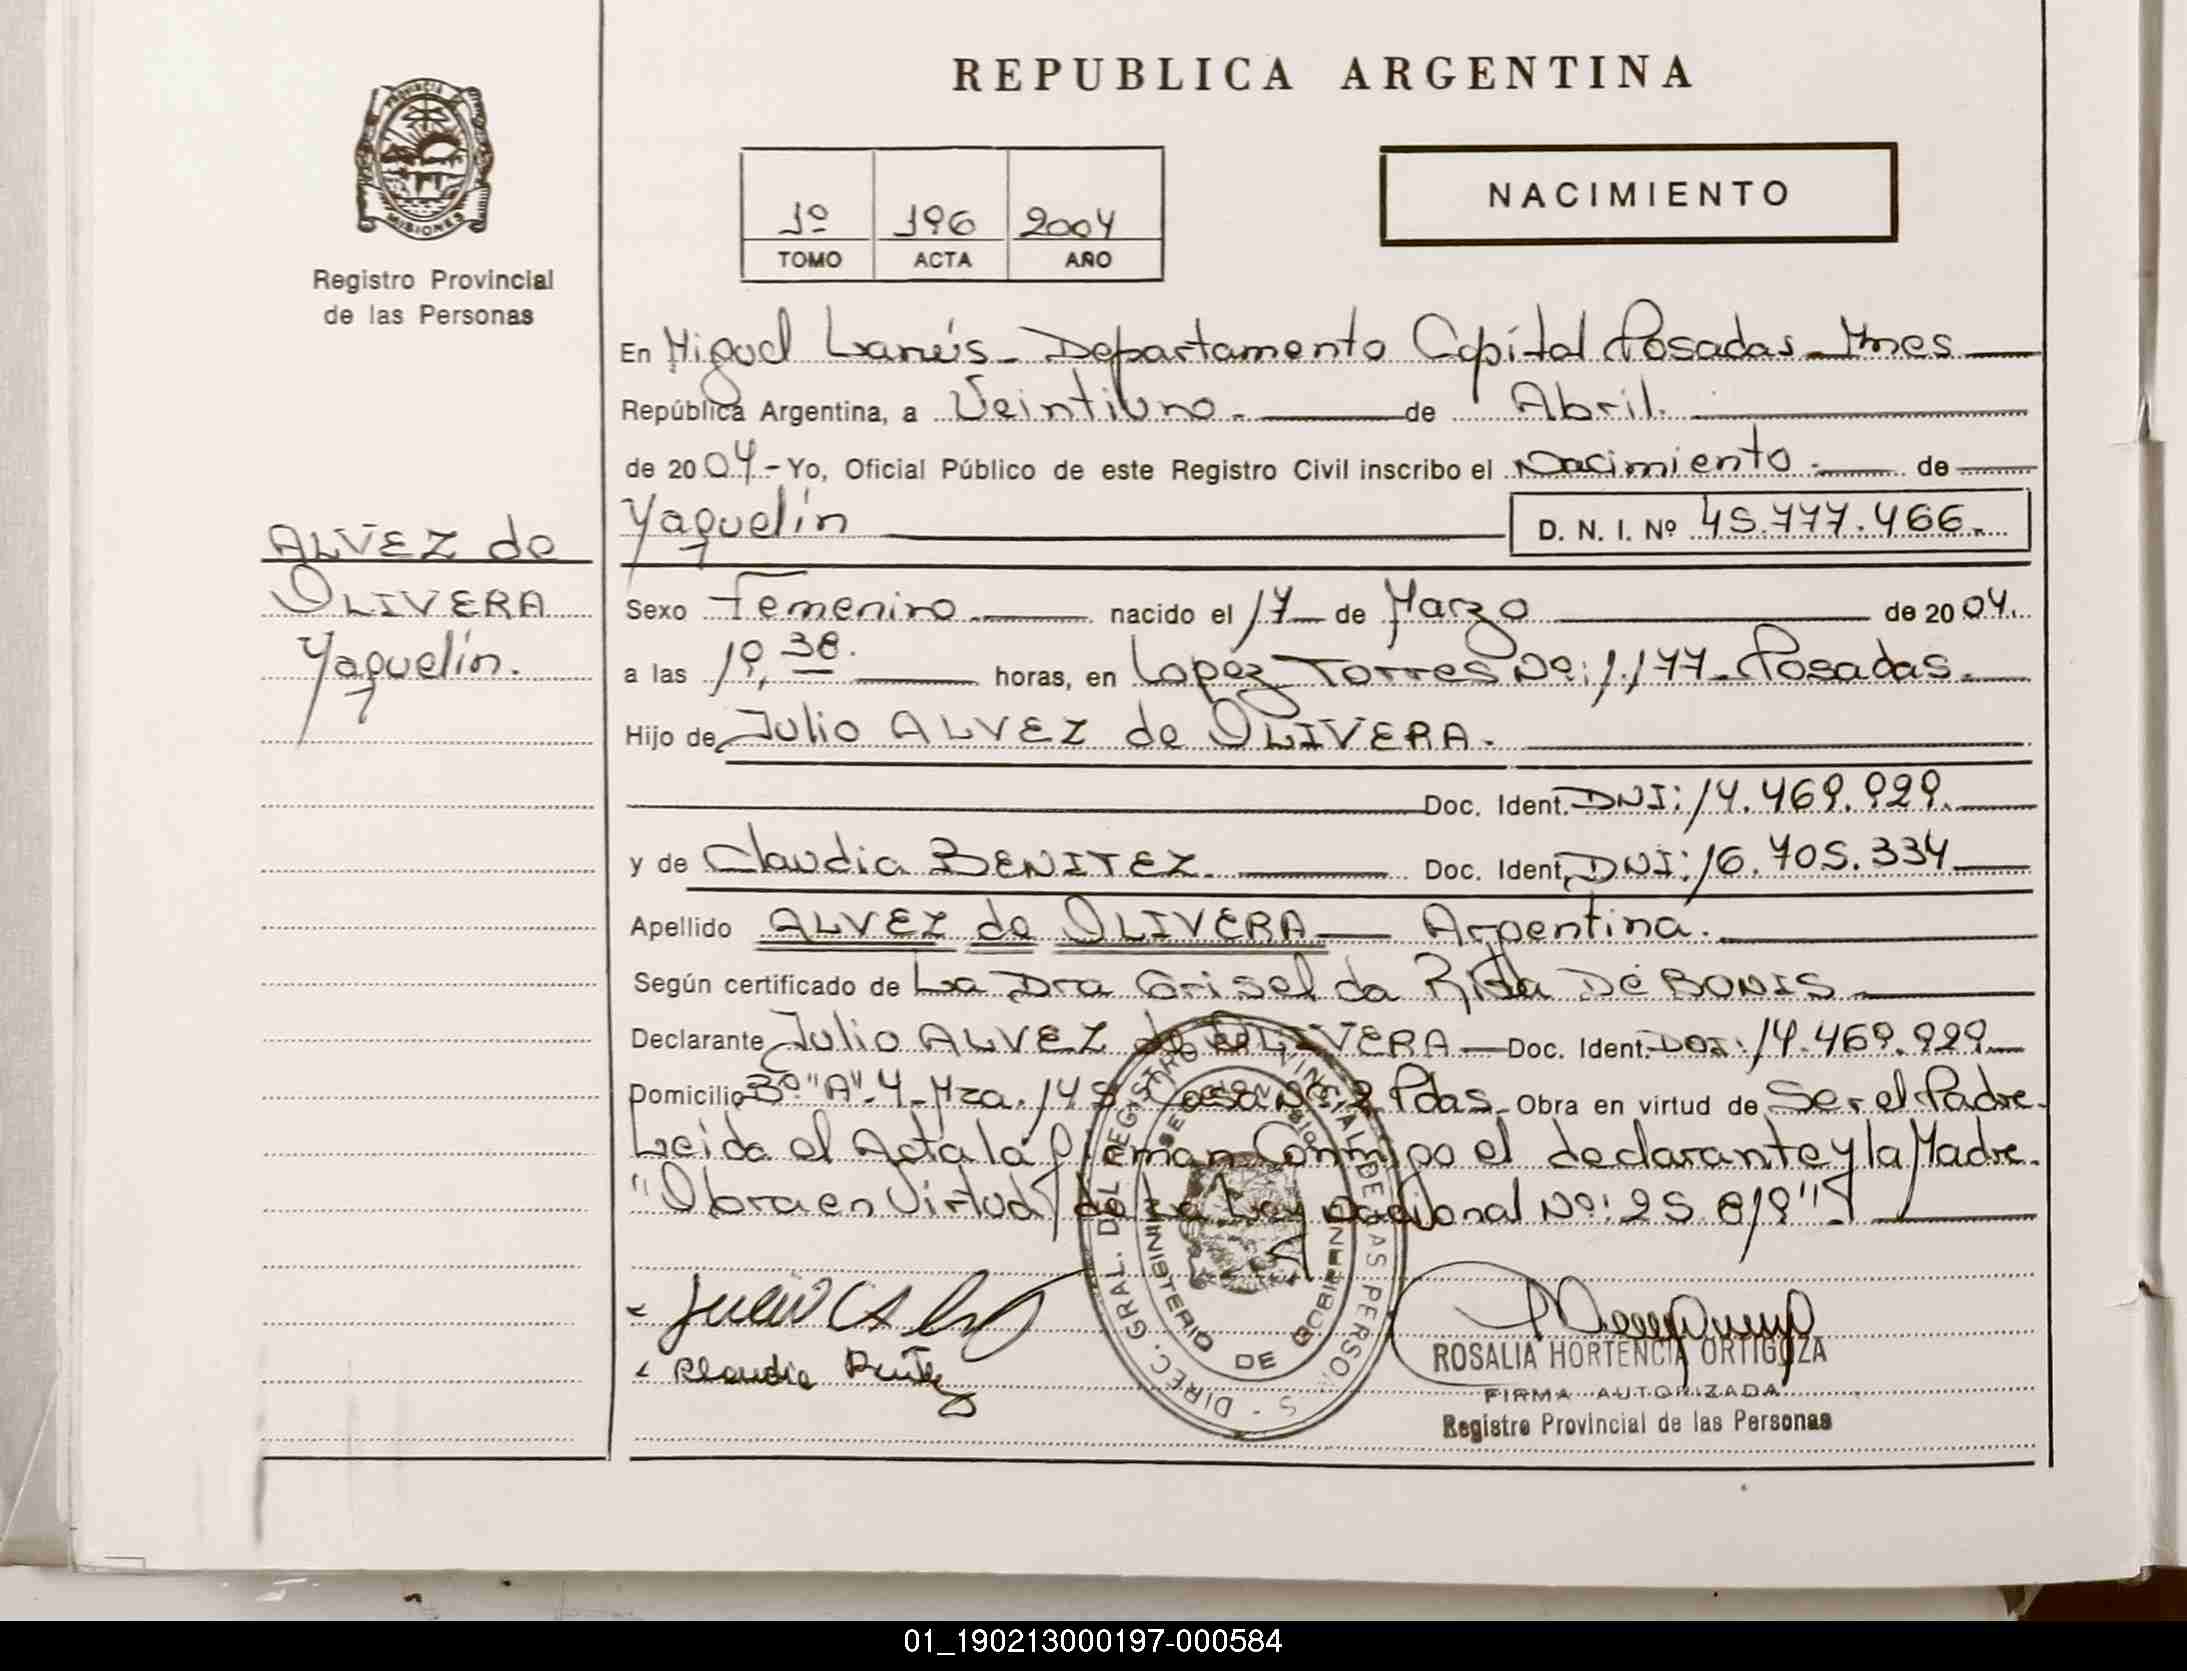 REPUBLICA ARGENTINA
PROVINCIA DE MISIONES
Registro Provincial
de las Personas
NACIMIENTO
1º 196 2004
TOMO ACTA AÑO
En Miguel Lanús - Departamento Capital Posadas - Mnes
República Argentina, a Veintiuno - de Abril.
de 2004 - Yo, Oficial Público de este Registro Civil inscribo el Nacimiento - de
Yaquelin D. N. I. Nº 45.777.466.
ALVEZ de
OLIVERA
Yaquelin.
Sexo Femenino - nacido el 17 de Marzo de 2004.
a las 19,38. horas, en Lopez Torres Nº: 1.177 - Posadas.
Hijo de Julio ALVEZ de OLIVERA.
Doc. Ident. DNI: 14.469.929.
y de Claudia BENITEZ. Doc. Ident. DNI: 16.705.334
Apellido ALVEZ de OLIVERA — Argentina.
Según certificado de La Dra Griselda Rida DE BONIS
Declarante Julio ALVEZ de OLIVERA — Doc. Ident. DNI: 14.469.929
Domicilio Bº "A"-4-Mza. 145 Casa Nº: 2 Pdas. Obra en virtud de Ser el Padre.
Leida el Acta la firman Conmigo el declarante y la Madre.
"Obra en Virtud de La Ley nacional Nº: 25.819"
DIREC. GRAL. DEL REGISTRO PROVINCIAL DE LAS PERSONAS
MINISTERIO DE GOBIERNO
Claudia
ROSALIA HORTENCIA ORTIGOZA
FIRMA AUTORIZADA
Registro Provincial de las Personas
01_190213000197-000584